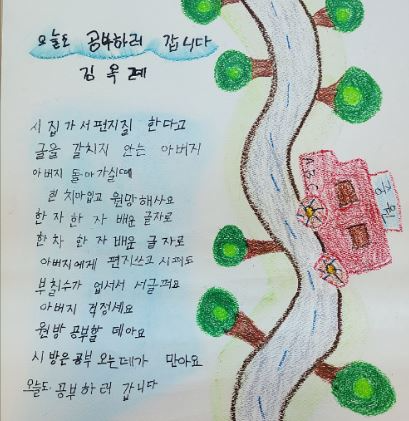 오늘도 공부하러 갑니다
김옥례
시집가서 편지질 한다고
글을 갈치지 안는 아버지
아버지 돌아가실때
흰 치마입고 원망해사요
한 자 한 자 배운 글자로
한 자 한 자 배운 글자로
아버지에게 편지쓰고 시퍼도
부칠수가 업서서 서글퍼요
아버지 걱정세요
원방 공부할 데아요
시방은 공부 오는데가 만아요
오늘도 공부하러 갑니다
ABC